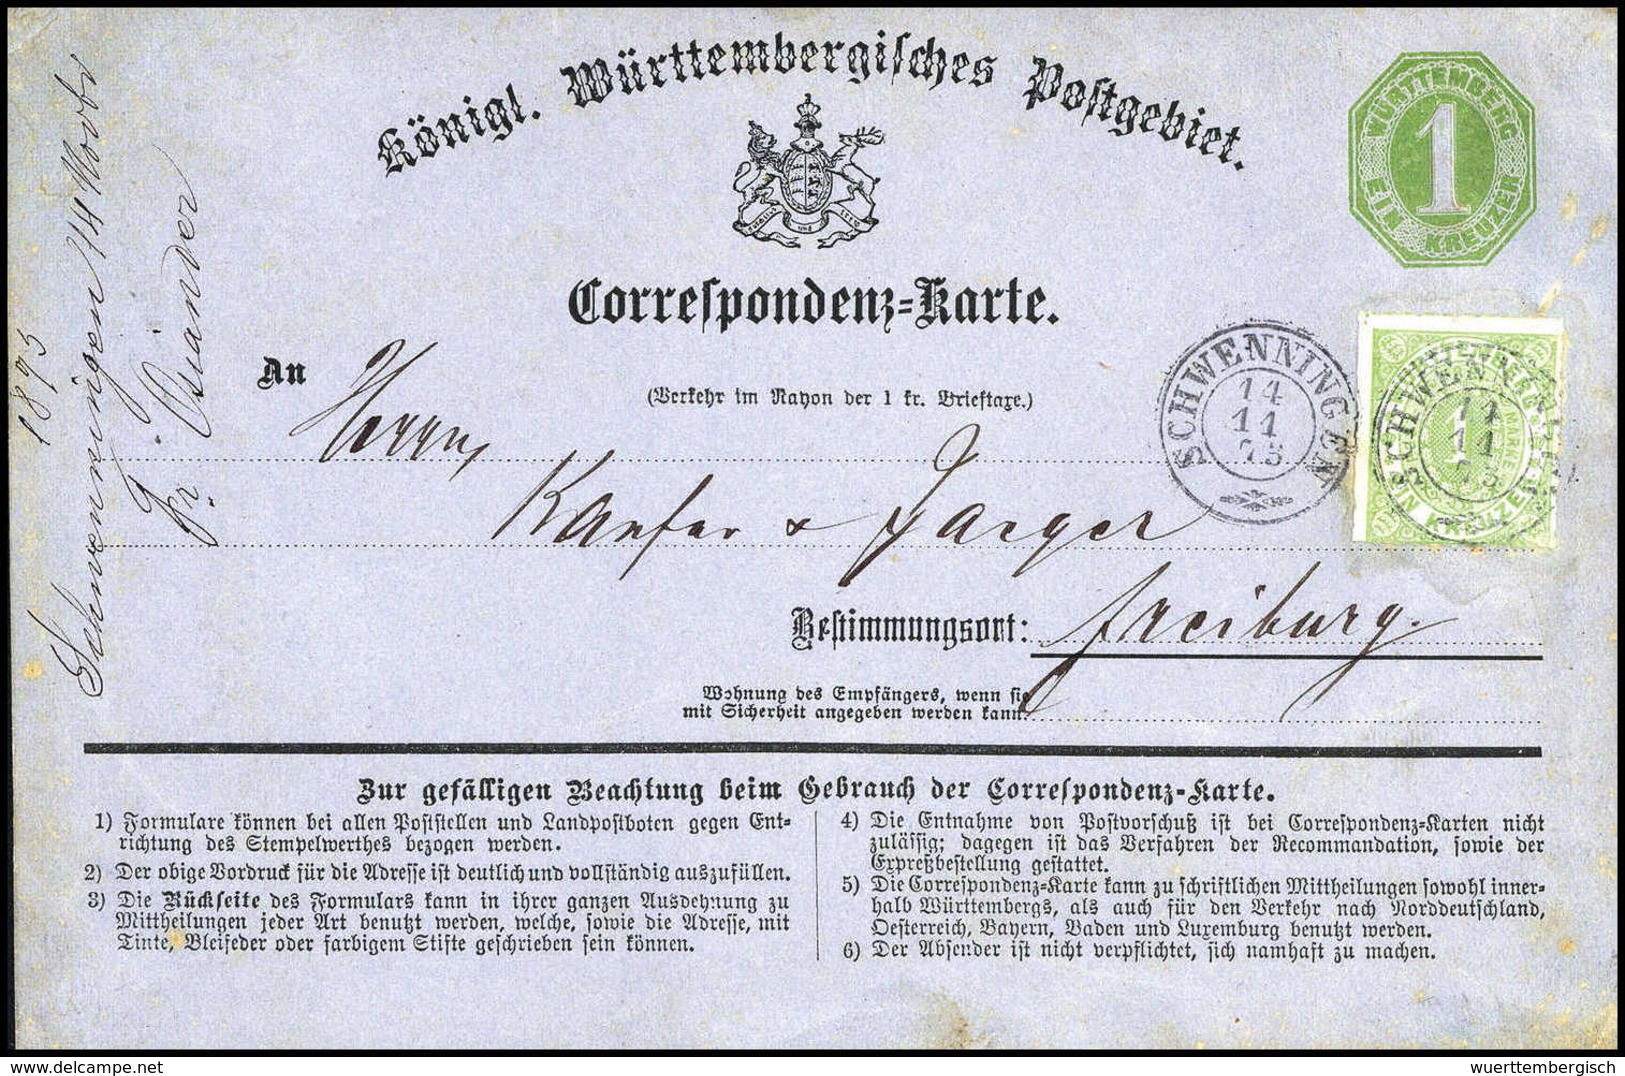 Königl. Württembergisches Postgebiet.
WÜRTTEMBERG
EIN KREUZER
1
FURCHTLOS und TREW
Correspondenz-Karte.
An
(Verkehr im Rayon der 1 kr. Brieftaxe.)
Herrn,
Kaufer & Jaeger
SCHWENNINGEN
14
11
73
SCHWENNINGEN
14
11
73
1
EIN KREUZER
Bestimmungsort: Freiburg.
Wohnung des Empfängers, wenn sie
mit Sicherheit angegeben werden kann:
Schwenningen 14 Novbr
1873
Fr. Osiander
Zur gefälligen Beachtung beim Gebrauch der Correspondenz-Karte.
1) Formulare können bei allen Poststellen und Landpostboten gegen Ent-
richtung des Stempelwerthes bezogen werden.
2) Der obige Vordruck für die Adresse ist deutlich und vollständig auszufüllen.
3) Die Rückseite des Formulars kann in ihrer ganzen Ausdehnung zu
Mittheilungen jeder Art benutzt werden, welche, sowie die Adresse, mit
Tinte, Bleifeder oder farbigem Stifte geschrieben sein können.
4) Die Entnahme von Postvorschuß ist bei Correspondenz-Karten nicht
zulässig; dagegen ist das Verfahren der Recommandation, sowie der
Expreßbestellung gestattet.
5) Die Correspondenz-Karte kann zu schriftlichen Mittheilungen sowohl inner-
halb Württembergs, als auch für den Verkehr nach Norddeutschland,
Oesterreich, Bayern, Baden und Luxemburg benutzt werden.
6) Der Absender ist nicht verpflichtet, sich namhaft zu machen.
wuerttembergisch